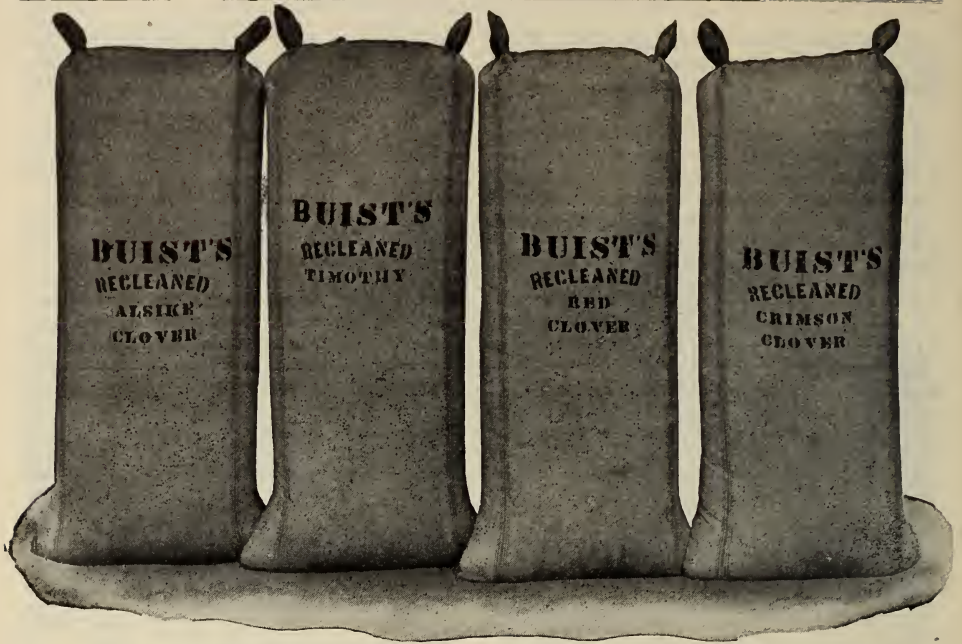 BUIST'S
RECLEANED
ALSIKE
CLOVER
BUIST'S
RECLEANED
TIMOTHY
BUIST'S
RECLEANED
RED
CLOVER
BUIST'S
RECLEANED
CRIMSON
CLOVER